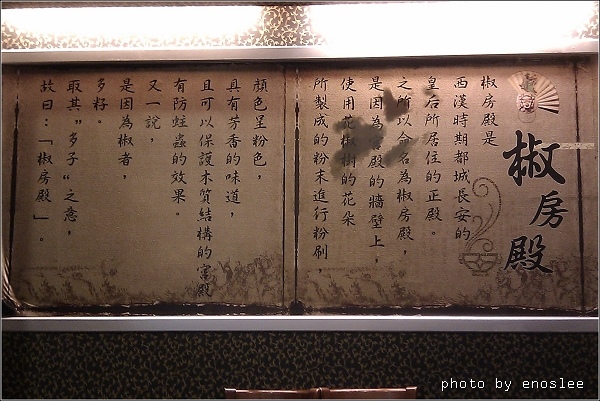 椒房殿
椒房殿是
西漢時期都城長安的
皇后所居住的正殿。
之所以命名為椒房殿，
是因為宮殿的牆壁上，
使用花椒樹的花朵
所製成的粉末進行粉刷，
顏色呈粉色，
具有芳香的味道，
且可以保護木質結構的宮殿
有防蛀蟲的效果。
又一說，
是因為椒者，
多籽。
取其"多子"之意，
故曰：「椒房殿」。
photo by enoslee